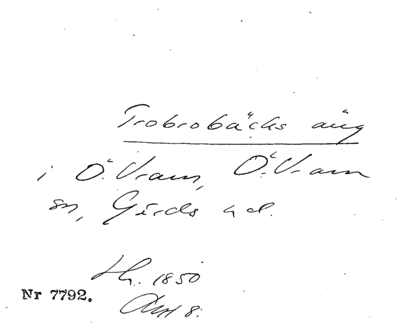 Trobrobäcks äng
i Ö. Vram, Ö. Vram
sn, Gärds hd.
Lh. 1850
Nr 7792. Akt 8.